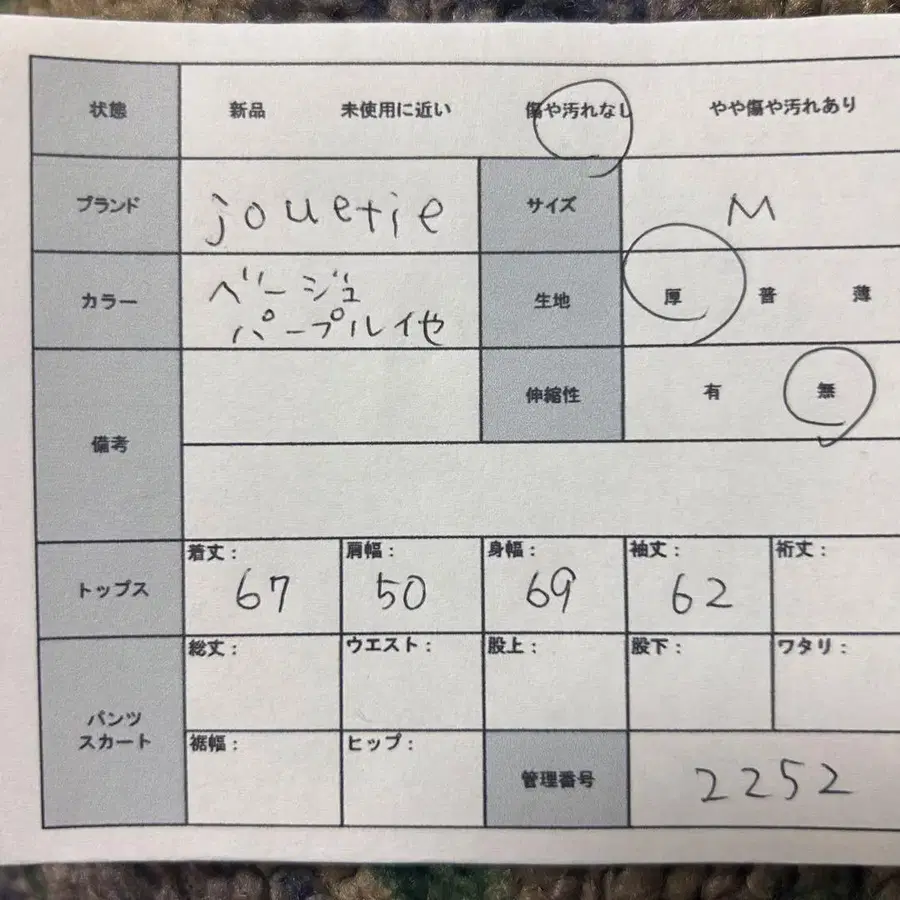 状態 新品 未使用に近い 傷や汚れなし やや傷や汚れあり
ブランド jouetie サイズ M
カラー ベージュ パープル他 生地 厚 普 薄
備考 伸縮性 有 無
トップス 着丈: 67 肩幅: 50 身幅: 69 袖丈: 62 裄丈:
パンツ スカート 総丈: ウエスト: 股上: 股下: ワタリ:
裾幅: ヒップ: 管理番号 2252